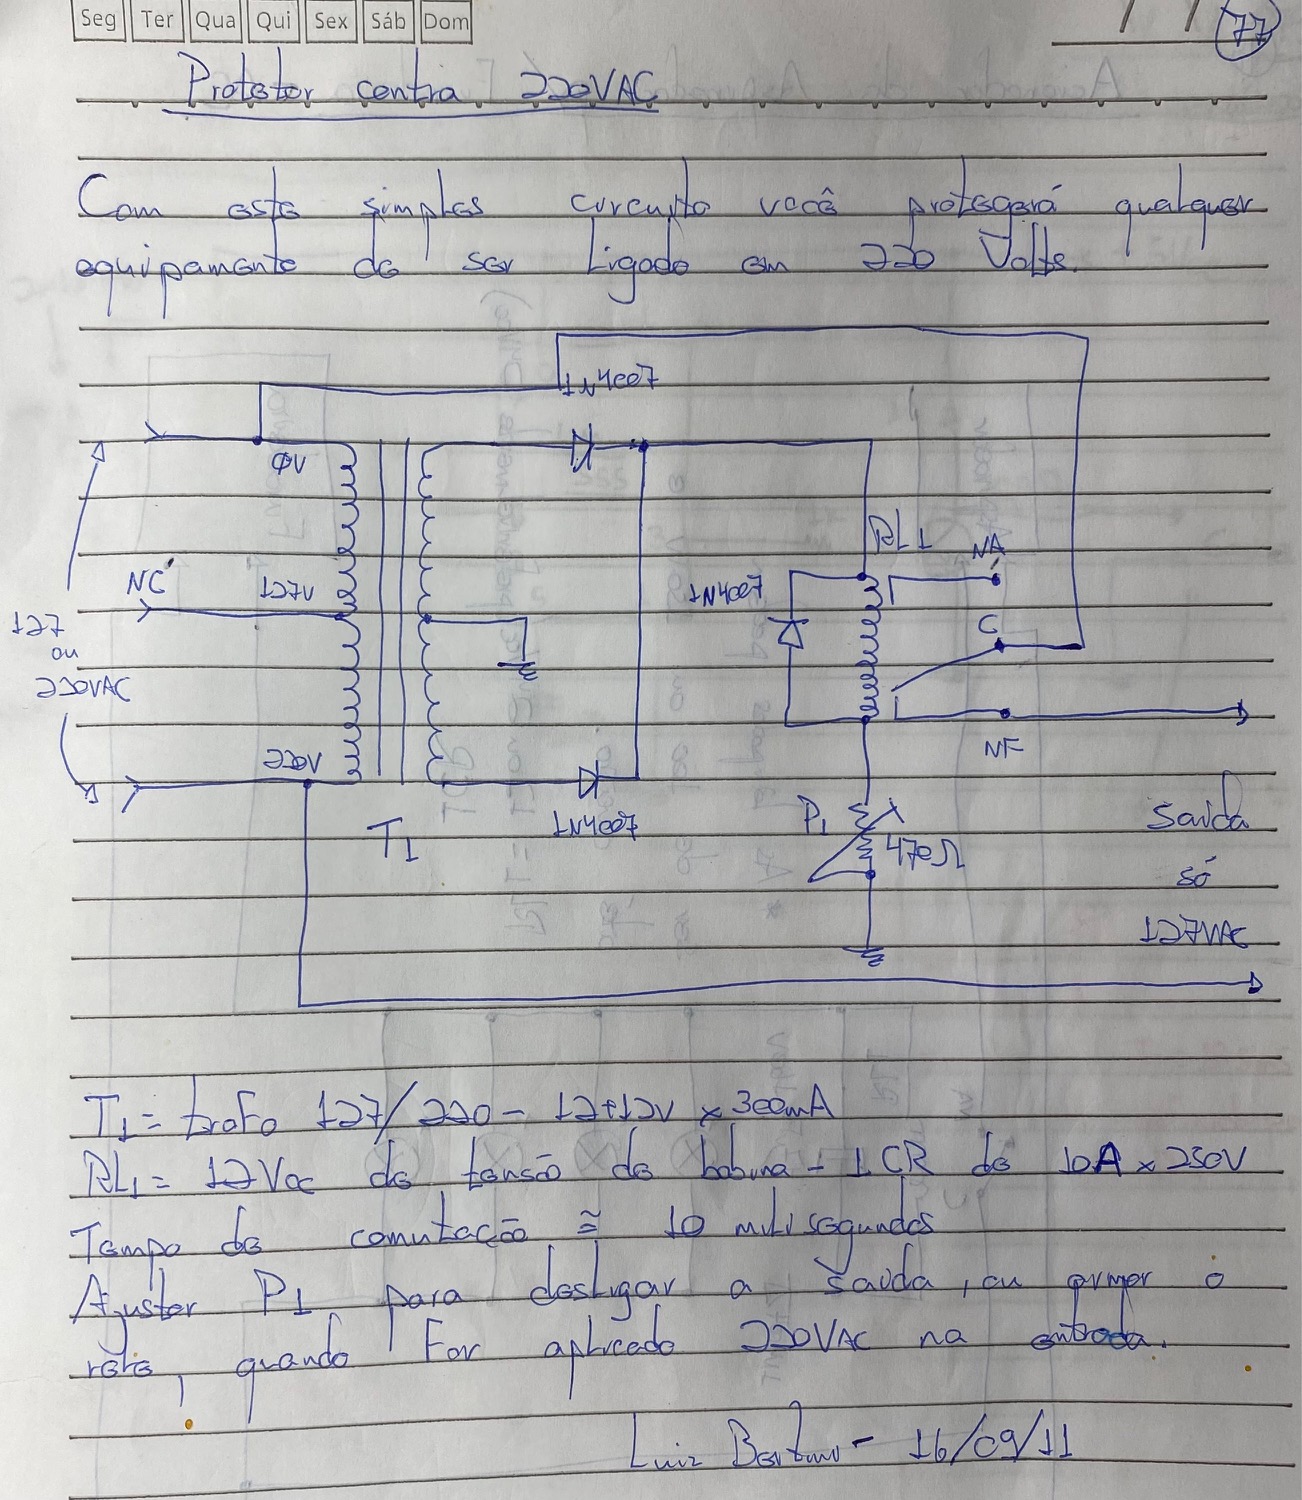 Seg Ter Qua Qui Sex Sáb Dom
/ /
77
Protetor contra 220VAC
Com este simples circuito você protegerá qualquer
equipamento de ser ligado em 220 Volts.
1N4007
0V
RL1
NA
NC
127V
1N4007
C
127
ou
220VAC
220V
NF
T1
1N4007
P1
470Ω
Saída
só
127VAC
T1 = trafo 127/220 - 12+12V x 300mA
RL1 = 12Vcc de tensão de bobina - 1 CR de 10A x 250V
Tempo de comutação ≅ 10 milisegundos
Ajustar P1 para desligar a saída, ou armar o
relé, quando for aplicado 220VAC na entrada.
Luiz - 16/09/11